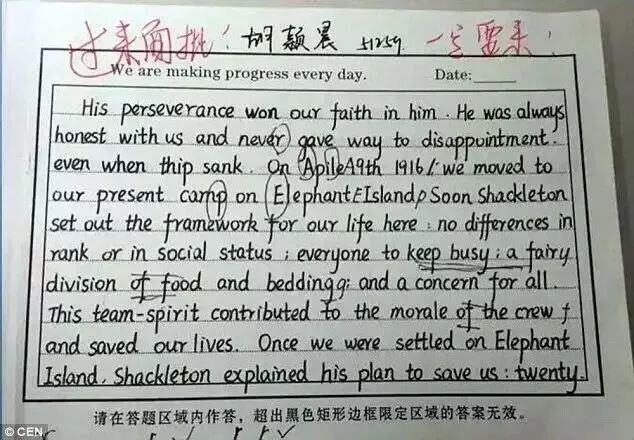 过来面批! 胡颖晨 51259 一定要来!
We are making progress every day. Date:
His perseverance won our faith in him. He was always
honest with us and never gave way to disappointment.
even when thip sank. On Apile A9th 1916/: we moved to
our present camp on Elephant EIsland/ Soon Shackleton
set out the framework for our life here: no differences in
rank or in social status; everyone to keep busy; a fairy
division of food and beddingg; and a concern for all.
This team-spirit contributed to the morale of the crew f
and saved our lives. Once we were settled on Elephant
Island, Shackleton explained his plan to save us: twenty
请在答题区域内作答,超出黑色矩形边框限定区域的答案无效。
© CEN